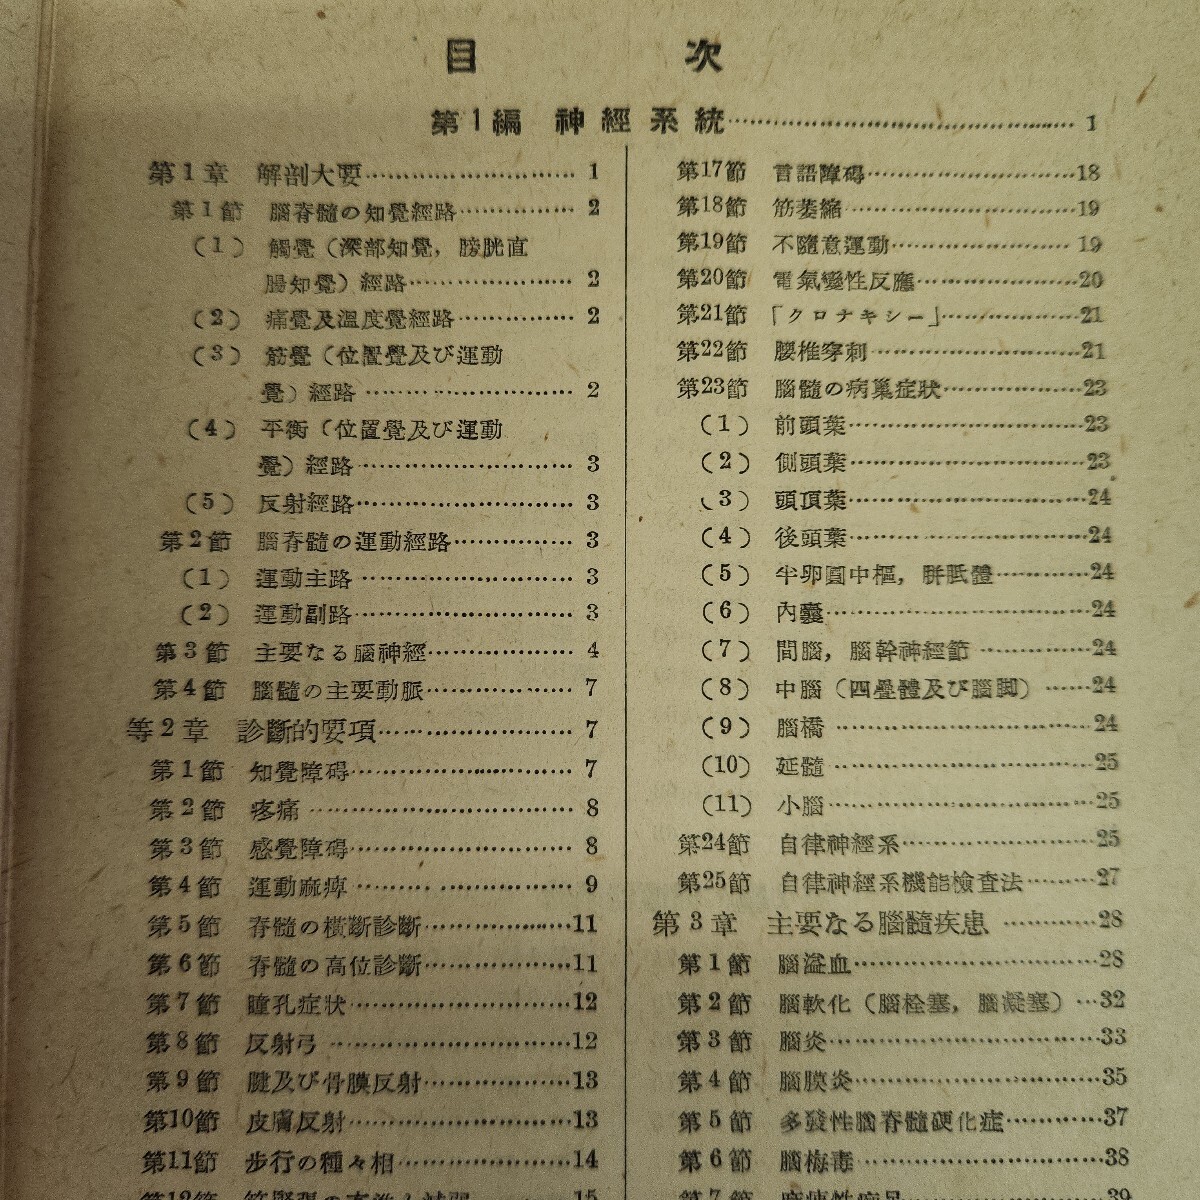 目次
第1編 神經系統…………1
第1章 解剖大要…………1
第1節 腦脊髓の知覺經路…………2
(1) 觸覺(深部知覺,膀胱直
腸知覺)經路…………2
(2) 痛覺及溫度覺經路…………2
(3) 筋覺(位置覺及び運動
覺)經路…………2
(4) 平衡(位置覺及び運動
覺)經路…………3
(5) 反射經路…………3
第2節 腦脊髓の運動經路…………3
(1) 運動主路…………3
(2) 運動副路…………3
第3節 主要なる腦神經…………4
第4節 腦髓の主要動脈…………7
等2章 診斷的要項…………7
第1節 知覺障碍…………7
第2節 疼痛…………8
第3節 感覺障碍…………8
第4節 運動麻痺…………9
第5節 脊髓の橫斷診斷…………11
第6節 脊髓の高位診斷…………11
第7節 瞳孔症狀…………12
第8節 反射弓…………12
第9節 腱及び骨膜反射…………13
第10節 皮膚反射…………13
第11節 步行の種々相…………14
第12節 筋緊張の亢進…………15
第17節 言語障碍…………18
第18節 筋萎縮…………19
第19節 不隨意運動…………19
第20節 電氣變性反應…………20
第21節 「クロナキシー」…………21
第22節 腰椎穿刺…………21
第23節 腦髓の病巢症狀…………23
(1) 前頭葉…………23
(2) 側頭葉…………23
(3) 頭頂葉…………24
(4) 後頭葉…………24
(5) 半卵圓中樞,胼胝體…………24
(6) 內囊…………24
(7) 間腦,腦幹神經節…………24
(8) 中腦(四疊體及び腦脚)……24
(9) 腦橋…………24
(10) 延髓…………25
(11) 小腦…………25
第24節 自律神經系…………25
第25節 自律神經系機能檢査法………27
第3章 主要なる腦髓疾患…………28
第1節 腦溢血…………28
第2節 腦軟化(腦栓塞,腦凝塞)…32
第3節 腦炎…………33
第4節 腦膜炎…………35
第5節 多發性腦脊髓硬化症…………37
第6節 腦梅毒…………38
第7節 麻痺性癡呆…………39